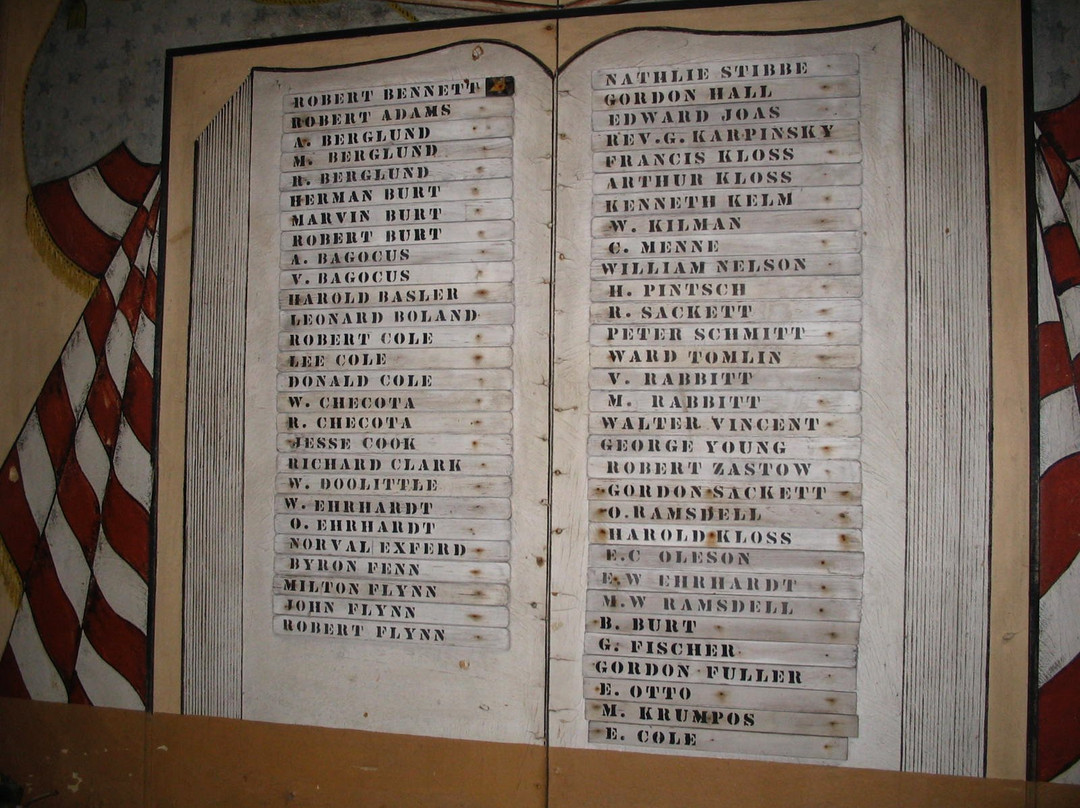 ROBERT BENNETT
ROBERT ADAMS
A. BERGLUND
M. BERGLUND
R. BERGLUND
HERMAN BURT
MARVIN BURT
ROBERT BURT
A. BAGOCUS
V. BAGOCUS
HAROLD BASLER
LEONARD BOLAND
ROBERT COLE
LEE COLE
DONALD COLE
W. CHECOTA
R. CHECOTA
JESSE COOK
RICHARD CLARK
W. DOOLITTLE
W. EHRHARDT
O. EHRHARDT
NORVAL EXFERD
BYRON FENN
MILTON FLYNN
JOHN FLYNN
ROBERT FLYNN
NATHLIE STIBBE
GORDON HALL
EDWARD JOAS
REV.G. KARPINSKY
FRANCIS KLOSS
ARTHUR KLOSS
KENNETH KELM
W. KILMAN
C. MENNE
WILLIAM NELSON
H. PINTSCH
R. SACKETT
PETER SCHMITT
WARD TOMLIN
V. RABBITT
M. RABBITT
WALTER VINCENT
GEORGE YOUNG
ROBERT ZASTOW
GORDON SACKETT
O. RAMSDELL
HAROLD KLOSS
E.C OLESON
E.W EHRHARDT
M.W RAMSDELL
B. BURT
G. FISCHER
GORDON FULLER
E. OTTO
M. KRUMPOS
E. COLE